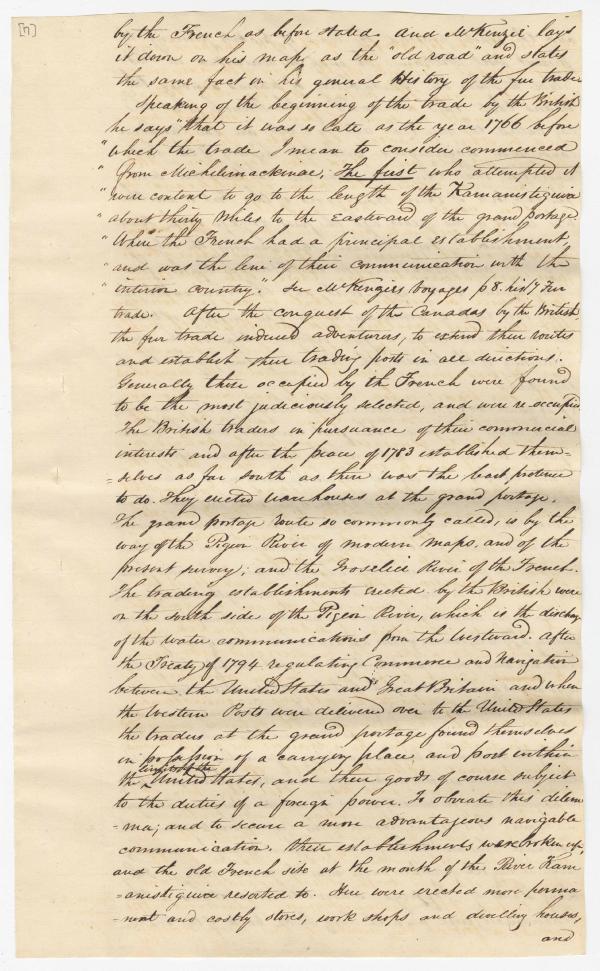 [7]
by the French as before stated. And McKenzie lays
it down on his map as the "old road" and states
the same fact in his general History of the fur trade
Speaking of the beginning of the trade by the British
he says "that it was so late as the year 1766 before
" which the trade I mean to consider commenced
" from Michilimackinac; The first who attempted it
" were content to go to the length of the Kamanistiquia
" about thirty miles to the Eastward of the grand portage.
" Where the French had a principal establishment
" and was the line of their communication with the
" interior country." See McKenzies Voyages p 8. hisy Fur
trade. After the conquest of the Canadas by the British
the fur trade induced adventurers, to extend their routes
and establish their trading posts in all directions.
Generally those occupied by the French were found
to be the most judiciously selected, and were re-occupied
The British traders in pursuance of their commercial
interests and after the peace of 1783 established them-
=selves as far south as there was the least pretence
to do. They erected warehouses at the grand portage.
The grand portage route so commonly called, is by the
way of the Pigeon River of modern maps, and of the
present survey; and the Groselice River of the French.
The trading establishments erected by the British were
on the south side of the Pigeon River, which is the discharge
of the water communications from the Westward. After
the Treaty of 1794 regulating Commerce and Navigation
between the United States and Great Britain and when
the Western Posts were delivered over to the United States
the traders at the grand portage found themselves
in possession of a carrying place and post within
limits of the
the United States, and their goods of course subject
to the duties of a foreign power. To obviate this dilem
=ma; and to secure a more advantageous navigable
communication. their establishments were broken up,
and the old French site at the mouth of the River Kam
=anistiquia resorted to. Here were erected more perma
=nent and costly stores, work shops and dwelling houses,
and